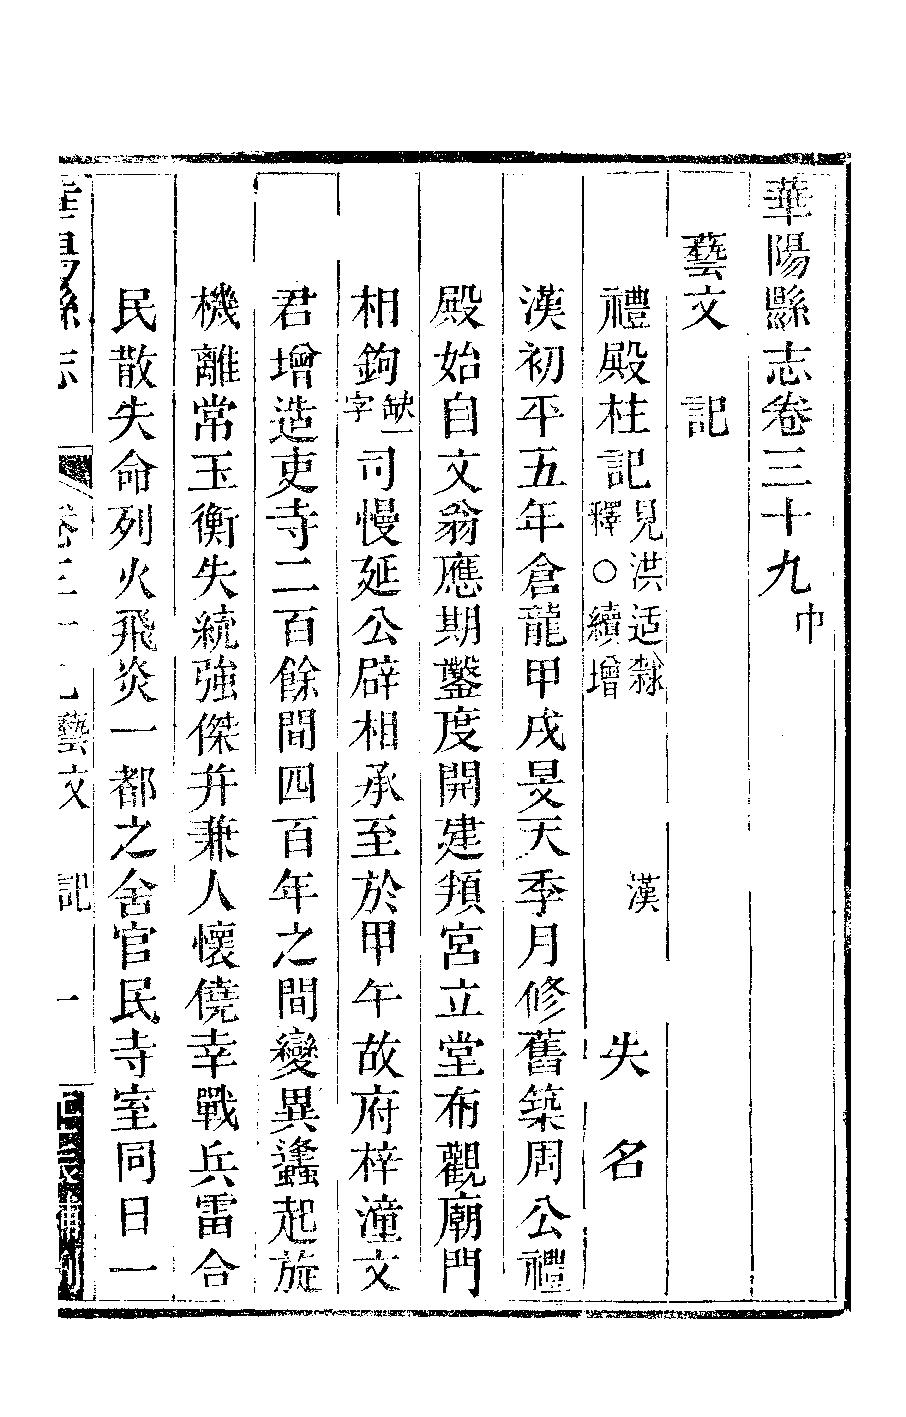 華陽縣志卷三十九中
藝文　記
禮殿柱記見洪适隸釋○續增　漢　失名
漢初平五年倉龍甲戌旻天季月修舊築周公禮
殿始自文翁應期鑿度開建頖宮立堂布觀廟門
相鉤缺一字司慢延公辟相承至於甲午故府梓潼文
君增造吏寺二百餘間四百年之間變異蠭起旋
機離常玉衡失統強傑并兼人懷僥幸戰兵雷合
民散失命列火飛炎一都之舍官民寺室同日一
華陽縣志　卷三十九藝文　記　一